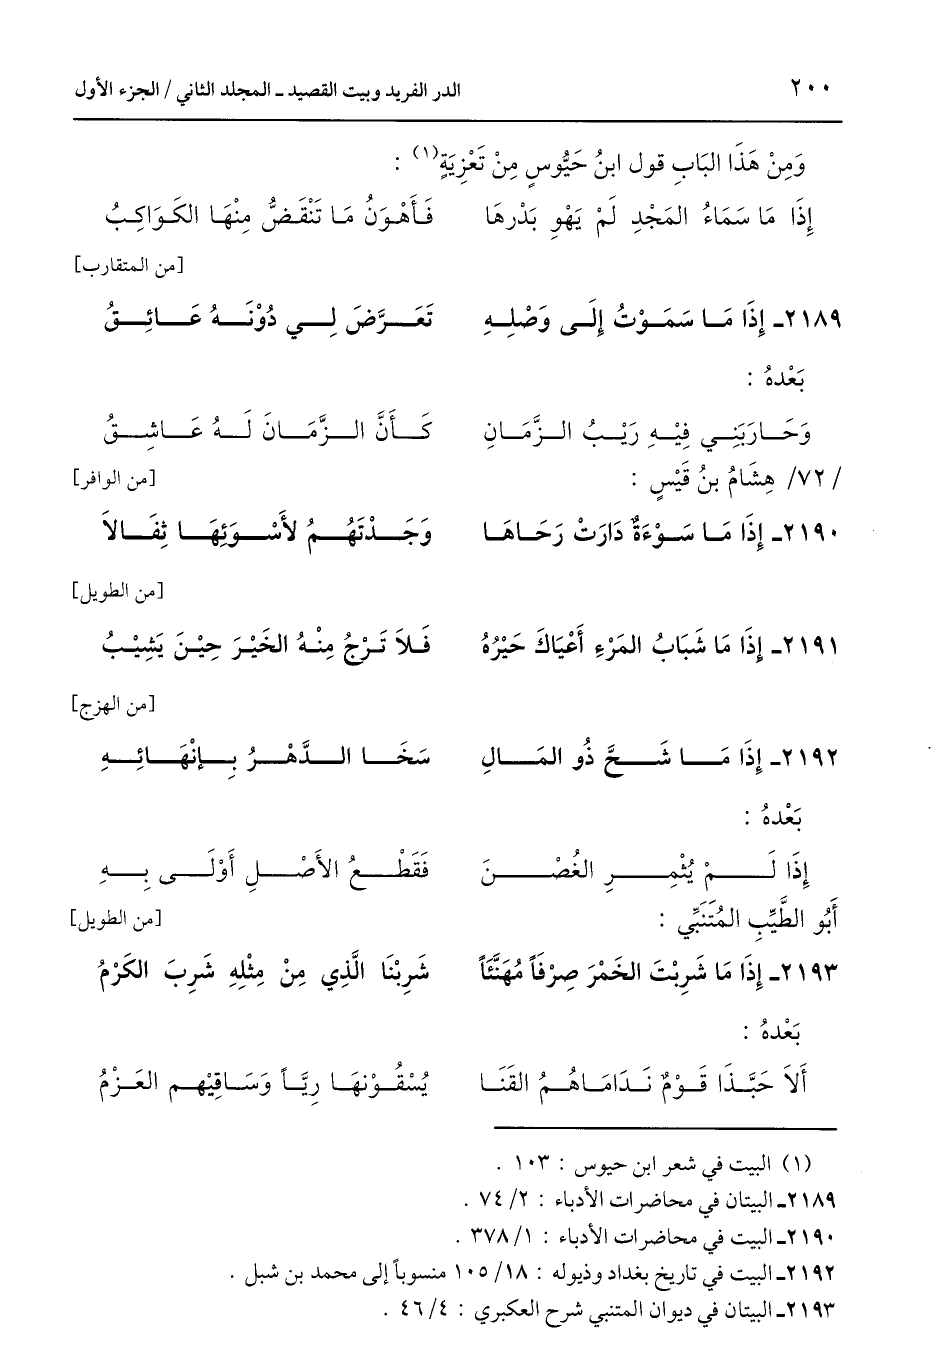 ٢٠٠ الدر الفريد وبيت القصيد ـ المجلد الثاني / الجزء الأول
وَمِنْ هَذَا البَابِ قول ابنُ حَيُّوسٍ مِنْ تَعْزِيَةٍ(١) :
إِذَا مَا سَمَاءُ المَجْدِ لَمْ يَهْوِ بَدْرهَا فَأَهْوَنُ مَا تَنْقَضُّ مِنْهَا الكَوَاكِبُ
[من المتقارب]
٢١٨٩ـ إِذَا مَا سَمَوْتُ إِلَى وَصْلِهِ تَعَرَّضَ لِي دُوْنَهُ عَائِقُ
بَعْدهُ :
وَحَارَبَنِي فِيْهِ رَيْبُ الزَّمَانِ كَأَنَّ الزَّمَانَ لَهُ عَاشِقُ
/ ٧٢/ هِشَامُ بنُ قَيْسٍ : [من الوافر]
٢١٩٠ـ إِذَا مَا سَوْءَةٌ دَارَتْ رَحَاهَا وَجَدْتَهُمُ لأَسْوَئِهَا ثِفَالاَ
[من الطويل]
٢١٩١ـ إِذَا مَا شَبَابُ المَرْءِ أَعْيَاكَ خَيْرُهُ فَلاَ تَرْجُ مِنْهُ الخَيْرَ حِيْنَ يَشِيْبُ
[من الهزج]
٢١٩٢ـ إِذَا مَا شَحَّ ذُو المَالِ سَخَا الدَّهْرُ بِإِنْهَائِهِ
بَعْدهُ :
إِذَا لَمْ يُثْمِرِ الغُصْنَ فَقَطْعُ الأَصْلِ أَوْلَى بِهِ
أَبُو الطَّيِّبِ المُتَنَبِّي : [من الطويل]
٢١٩٣ـ إِذَا مَا شَرِبْتَ الخَمْرَ صِرْفَاً مُهَنَّئاً شَرِبْنَا الَّذِي مِنْ مِثْلِهِ شَرِبَ الكَرْمُ
بَعْدهُ :
أَلاَ حَبَّذَا قَوْمٌ نَدَامَاهُمُ القَنَا يُسْقُوْنهَا رِيَّاً وَسَاقِيْهِم العَزْمُ
(١) البيت في شعر ابن حيوس : ١٠٣ .
٢١٨٩ـ البيتان في محاضرات الأدباء : ٢/ ٧٤ .
٢١٩٠ـ البيت في محاضرات الأدباء : ١/ ٣٧٨ .
٢١٩٢ـ البيت في تاريخ بغداد وذيوله : ١٨/ ١٠٥ منسوباً إلى محمد بن شبل .
٢١٩٣ـ البيتان في ديوان المتنبي شرح العكبري : ٤/ ٤٦ .